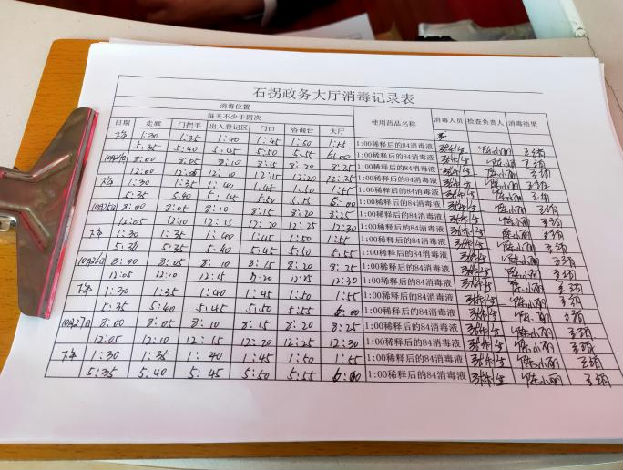 石拐政务大厅消毒记录表
消毒位置
每天不少于四次
日期 走廊 门把手 出入登记区 门口 等候区 大厅 使用药品名称 消毒人员 检查负责人 消毒效果
下午 1:30 1:35 1:40 1:45 1:50 1:55 1:00稀释后的84消毒液
5:35 5:40 5:45 5:50 5:55 6:00 1:00稀释后的84消毒液 陈小丽
8:00 8:05 8:10 8:15 8:20 8:25 1:00稀释后的84消毒液 陈小丽
12:00 12:05 12:10 12:15 12:20 12:25 1:00稀释后的84消毒液 陈小丽
下午 1:30 1:35 1:40 1:45 1:50 1:55 1:00稀释后的84消毒液 陈小丽
5:35 5:40 5:45 5:50 5:55 6:00 1:00稀释后的84消毒液 陈小丽
8:00 8:05 8:10 8:15 8:20 8:25 1:00稀释后的84消毒液 陈小丽
12:05 12:10 12:15 12:20 12:25 12:30 1:00稀释后的84消毒液 陈小丽
下午 1:30 1:35 1:40 1:45 1:50 1:55 1:00稀释后的84消毒液 陈小丽
5:30 5:35 5:40 5:45 5:50 5:55 1:00稀释后的84消毒液 陈小丽
10月26日 8:00 8:05 8:10 8:15 8:20 8:25 1:00稀释后的84消毒液 陈小丽
12:05 12:10 12:15 12:20 12:25 12:30 1:00稀释后的84消毒液 陈小丽
下午 1:30 1:35 1:40 1:45 1:50 1:55 1:00稀释后的84消毒液 陈小丽
5:35 5:40 5:45 5:50 5:55 6:00 1:00稀释后的84消毒液 陈小丽
10月27日 8:00 8:05 8:10 8:15 8:20 8:25 1:00稀释后的84消毒液 陈小丽
12:05 12:10 12:15 12:20 12:25 12:30 1:00稀释后的84消毒液 陈小丽
下午 1:30 1:35 1:40 1:45 1:50 1:55 1:00稀释后的84消毒液 陈小丽
5:35 5:40 5:45 5:50 5:55 6:00 1:00稀释后的84消毒液 陈小丽